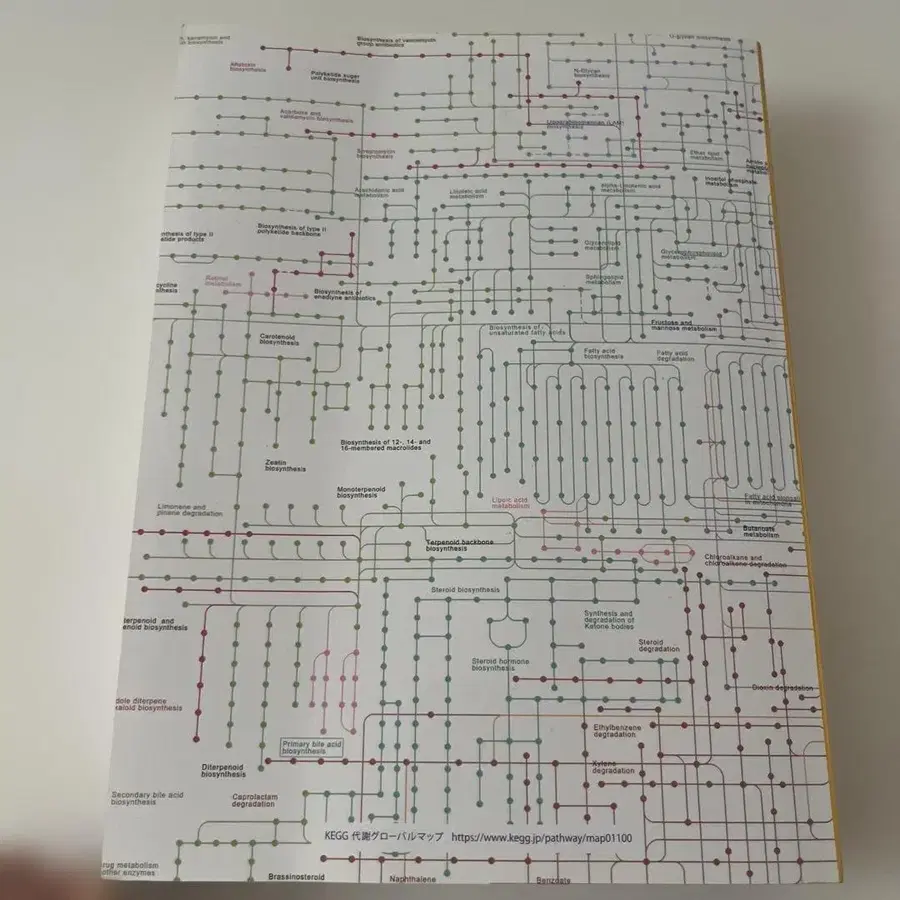 Biosynthesis of vancomycin
group antibiotics
biosynthesis
Polyketide sugar
unit biosynthesis
N-Glycan
biosynthesis
Acarbose and
validamycin biosynthesis
Lipoarabinomannan (LAM)
biosynthesis
Streptomycin
biosynthesis
Ether lipid
metabolism
Arachidonic acid
metabolism
Linoleic acid
metabolism
alpha-Linolenic acid
metabolism
Inositol phosphate
metabolism
Biosynthesis of type II
polyketide backbone
nthesis of type II
etide products
Glycerolipid
metabolism
Glycerophospholipid
metabolism
Retinol
metabolism
Sphingolipid
metabolism
Biosynthesis of
enediyne antibiotics
Carotenoid
biosynthesis
Biosynthesis of
unsaturated fatty acids
Fructose and
mannose metabolism
Fatty acid
biosynthesis
Fatty acid
degradation
Biosynthesis of 12-, 14- and
16-membered macrolides
Zeatin
biosynthesis
Monoterpenoid
biosynthesis
Lipoic acid
metabolism
Limonene and
pinene degradation
Butanoate
metabolism
Terpenoid backbone
biosynthesis
Chloroalkane and
chloroalkene degradation
Steroid biosynthesis
Synthesis and
degradation of
Ketone bodies
terpenoid and
enoid biosynthesis
Steroid
degradation
Steroid hormone
biosynthesis
Dioxin degradation
dole diterpene
kaloid biosynthesis
Ethylbenzene
degradation
Primary bile acid
biosynthesis
Diterpenoid
biosynthesis
Xylene
degradation
Secondary bile acid
biosynthesis
Caprolactam
degradation
KEGG 代謝グローバルマップ https://www.kegg.jp/pathway/map01100
rug metabolism
other enzymes
Brassinosteroid
Naphthalene
Benzoate